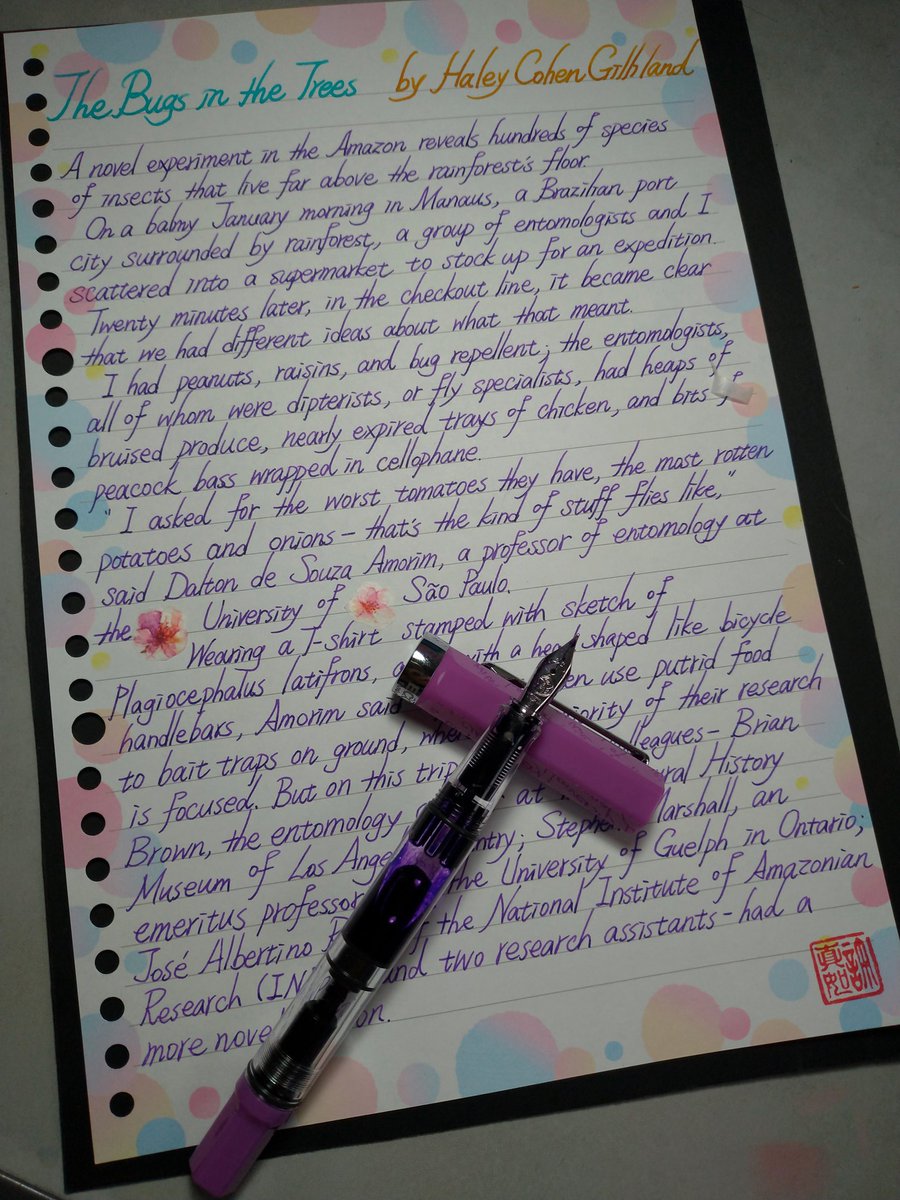 The Bugs in the Trees by Haley Cohen Gilhland
A novel experiment in the Amazon reveals hundreds of species
of insects that live far above the rainforest's floor.
On a balmy January morning in Manaus, a Brazilian port
city surrounded by rainforest, a group of entomologists and I
scattered into a supermarket to stock up for an expedition.
Twenty minutes later, in the checkout line, it became clear
that we had different ideas about what that meant.
I had peanuts, raisins, and bug repellent; the entomologists,
all of whom were dipterists, or fly specialists, had heaps of
bruised produce, nearly expired trays of chicken, and bits of
peacock bass wrapped in cellophane.
"I asked for the worst tomatoes they have, the most rotten
potatoes and onions – that's the kind of stuff flies like,"
said Dalton de Souza Amorim, a professor of entomology at
the University of São Paulo.
Wearing a T-shirt stamped with sketch of
Plagiocephalus latifrons, a with a head shaped like bicycle
handlebars, Amorim said use putrid food
to bait traps on ground, majority of their research
is focused. But on this trip leagues – Brian
Brown, the entomology at History
Museum of Los Angeles Stephen Marshall, an
emeritus professor the University of Guelph in Ontario;
José Albertino the National Institute of Amazonian
Research (IN and two research assistants – had a
more on.